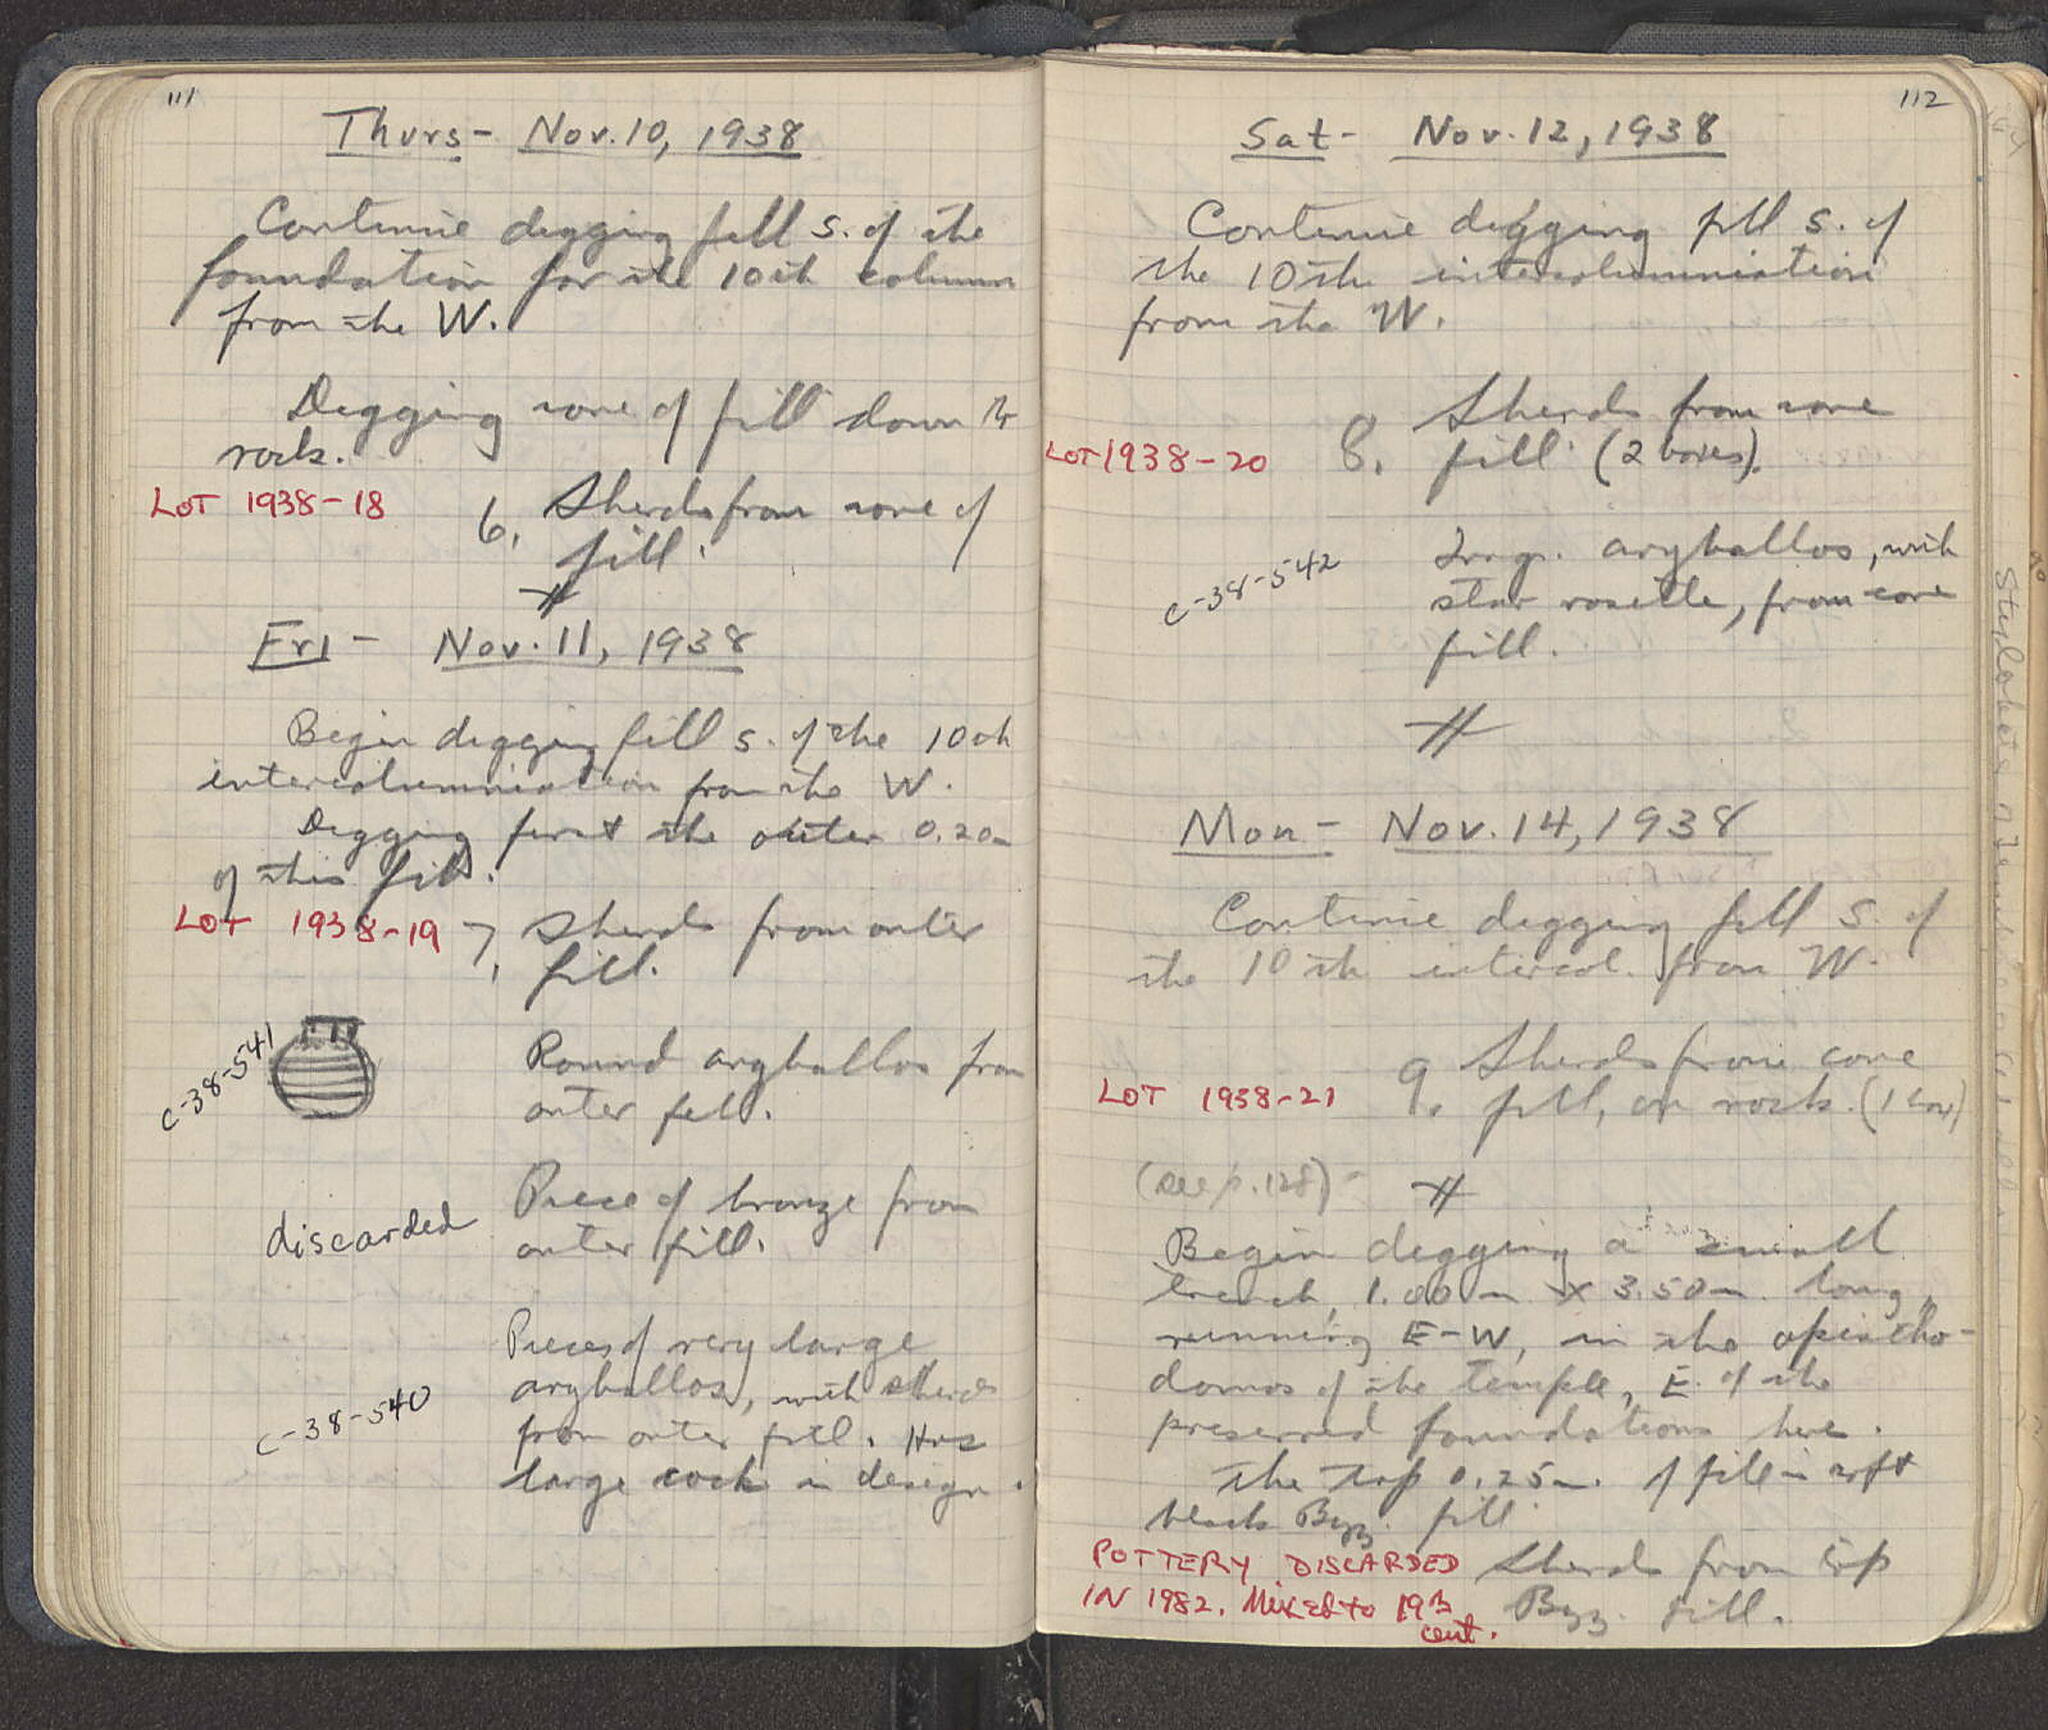 111
Thurs- Nov. 10, 1938
Continue digging fill S. of the
foundation for the 10th column
from the W.
Digging core of fill down to
rock.
LOT 1938-18
6. Sherds from core of
fill.
Fri- Nov. 11, 1938
Begin digging fill S. of the 10th
intercolumniation from the W.
Digging first the outer 0.20m
of this fill.
LOT 1938-19
7. Sherds from outer
fill.
C-38-541
Round aryballos from
outer fill.
discarded
Piece of bronze from
outer fill.
C-38-540
Pieces of very large
aryballos, with sherds
from outer fill. Has
large cock in design.
112
Sat- Nov. 12, 1938
Continue digging fill S. of
the 10th intercolumniation
from the W.
LOT 1938-20
8. Sherds from core
fill (2 boxes).
C-38-542
Frag. aryballos, with
star rosette, from core
fill.
Mon- Nov. 14, 1938
Continue digging fill S. of
the 10th intercol. from W.
LOT 1938-21
9. Sherds from core
fill, on rock. (1 box)
(see p. 128)-
Begin digging a small
trench, 1.00m x 3.50m. long,
running E-W, in the opistho-
domos of the temple, E. of the
preserved foundations here.
The top 0.25m. of fill is soft
black Byz. fill
POTTERY DISCARDED
IN 1982. Mixed to 19th
cent.
Sherds from top
Byz. fill.